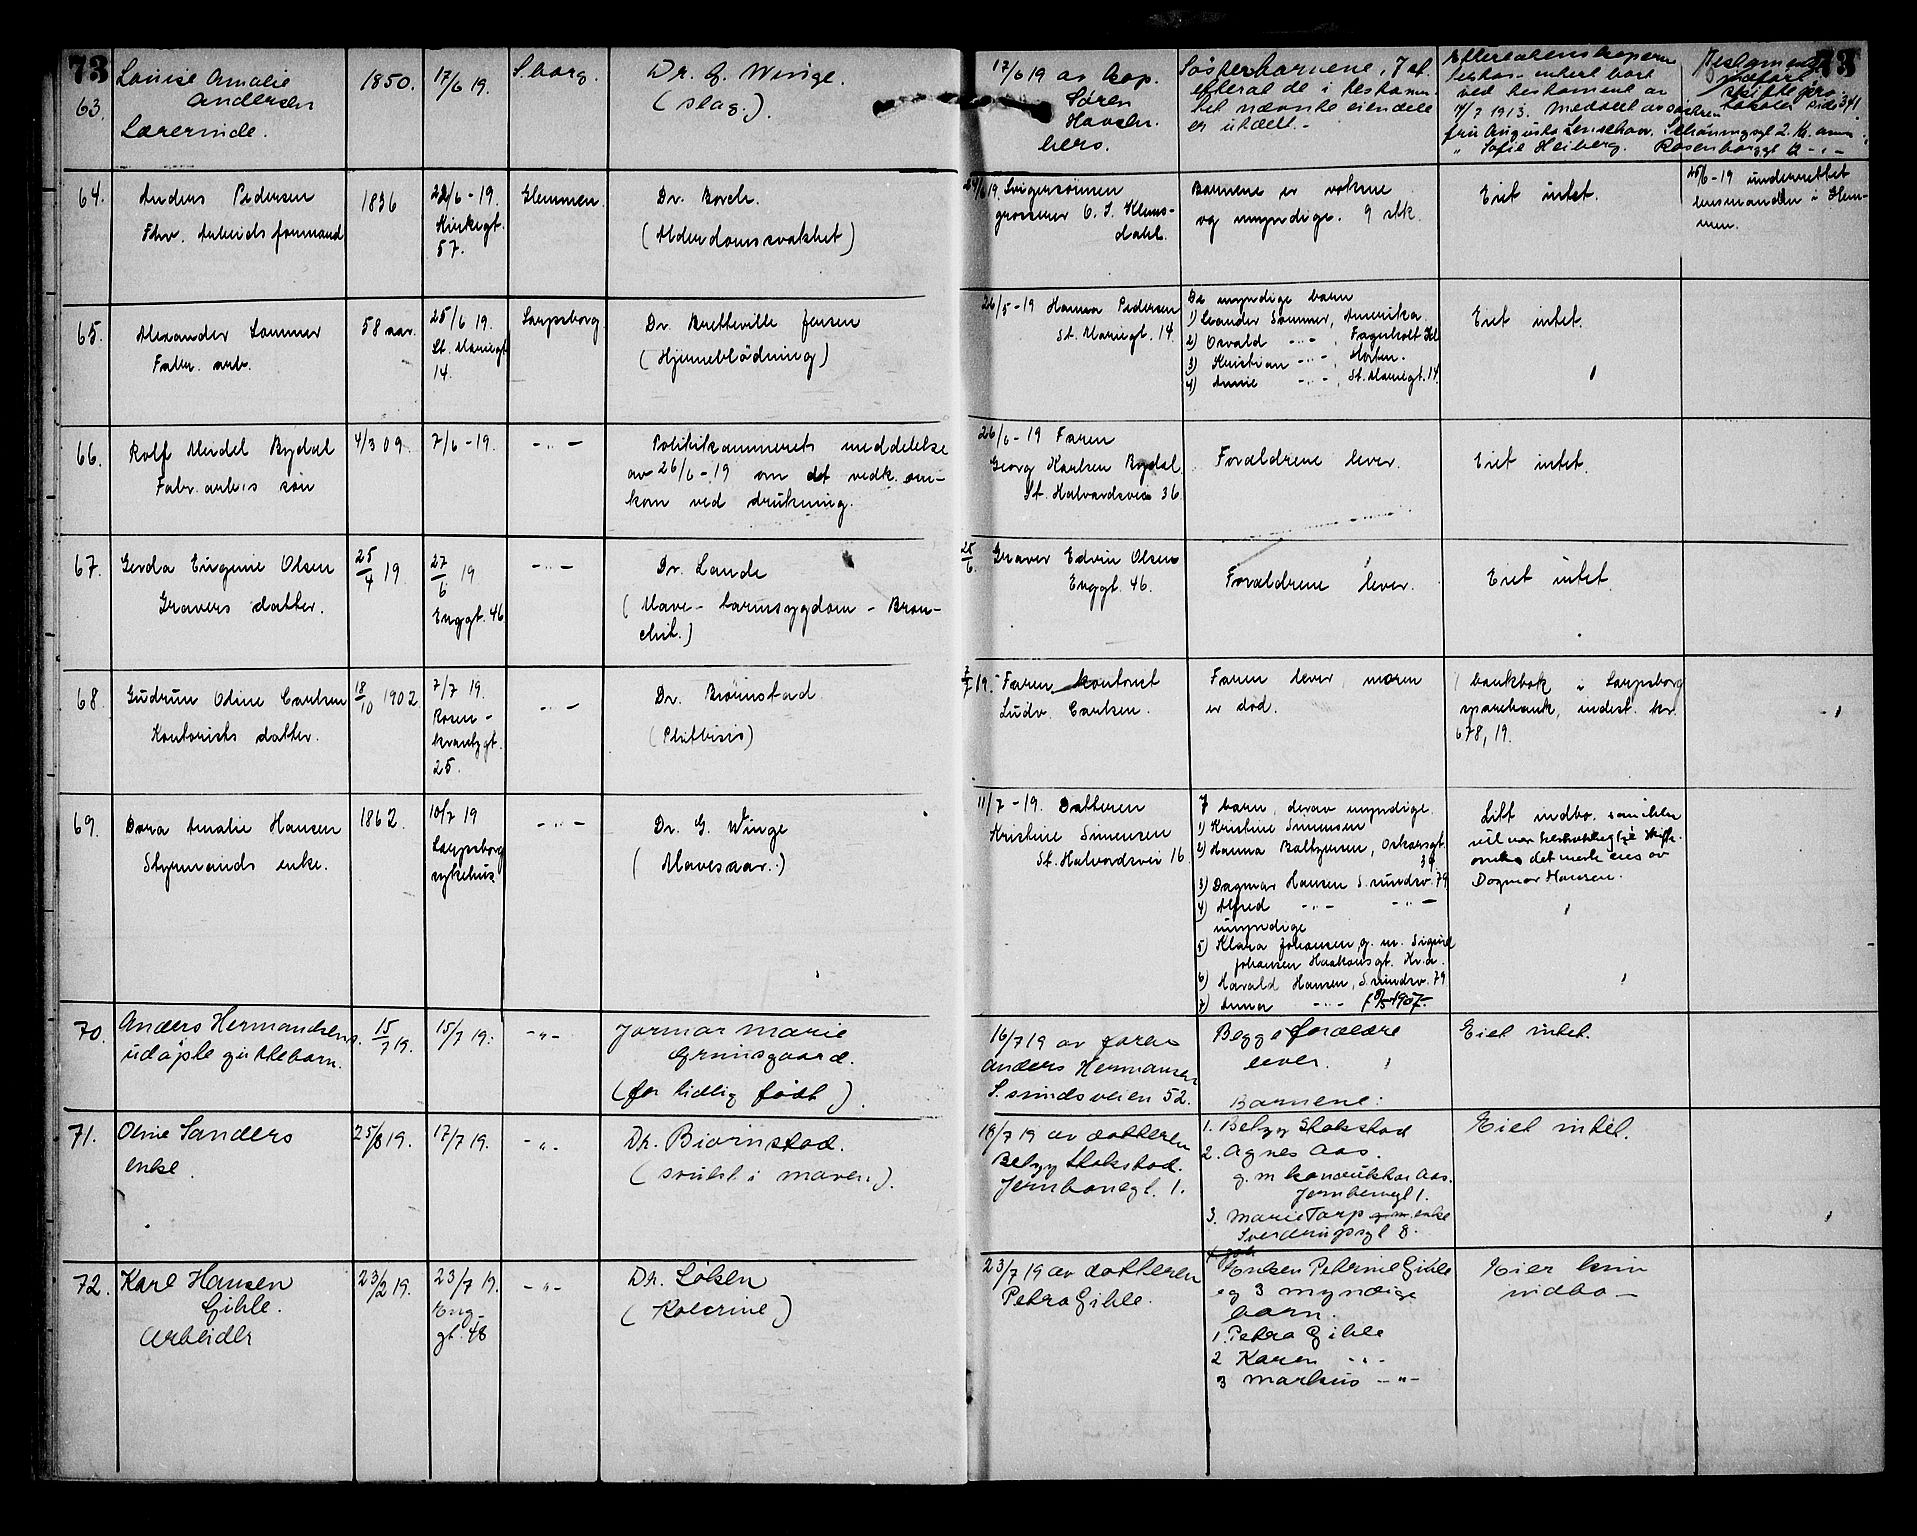 73
73
63.
Louise Amalie
Andersen
Lærerinde.
1850.
17/6 19.
S.borg.
Dr. G. Winge.
(slag.)
17/6 19 av kop.
Søren
hers.
Søsterbarnene, 7 st.
efterat de i testamen-
tet nævnte eiendele
er utdelt.-
ved testament av
14/7 1913. Meddelt av søstren
fru Augusta
" Sofie Heiberg.
64.
Anders Pedersen
Fhv. Arbeidsformand
1836
22/6-19.
Kirkegt.
57.
Glemmen.
Dr. Borch.
(Alderdomssvakhet)
24/6 19. Svigersönnen
grosserer C. J. Hems-
dahl.
Barnene er voksne
og myndige. 9 stk.
Eiet intet.
25/6-19 underrettet
lensmanden i Glem-
men.
65.
Alexander Sommer
Fabr. arb.
58 aar.
25/6 19.
St. Mariegt
14.
Sarpsborg
Dr. Bretteville Jensen
(Hjerneblödning)
26/5-19 Hanna Pedersen
St. Mariegt. 14.
De myndige barn
1) Leander Sommer, Amerika.
2) Osvald -"- ,
3) Kristian -"- , Horten.
4) Annie -"- , St. Mariegt. 14.
Eiet intet.
66.
Rolf Meidel Bydal
Fabr. arb.s sön
4/3 09.
7/6-19.
-"-
Politikammerets meddelelse
av 26/6-19 om at vedk. om-
kom ved drukning.
26/6-19 Faren
Georg Karlsen Bydal
St. Halvardsvei 36
Forældrene lever.
Eiet intet.
67.
Gerda Eugenie Olsen
Gravers datter.
25/4 19.
27/6 19
Enggt. 46
-"-
Dr. Lande
(Mave-tarmsygdom-Bron-
chit.)
28/6. Graver Edvin Olsen
Enggt. 46.
Forældrene lever.
Eiet intet.
68.
Gudrun Odine Carlsen
Kontorists datter.
18/10 1902
7/7 19.
Rosen-
krantzgt.
25.
-"-
Dr. Björnstad.
(Phthisis)
7/7 19. Faren kontorist
Ludv. Carlsen.
Faren lever, moren
er död.
1 bankbok i Sarpsborg
sparebank, indest. kr.
678,19.
69.
Dora Amalie Hansen
Styrmands enke.
1862.
10/7 19
Sarpsborg
sykehus.
-"-
Dr. G. Winge
(Mavesaar.)
11/7-19. Datteren
Kristine Simensen
St. Halvardsvei 16
7 barn, derav myndige
1) Kristine Simensen
2) Hanna Baltzersen, Oskarsgt.
39
3) Dagmar Hansen S.sundsv. 79
4) Alfred -"- -"-
umyndige
5) Klara Johansen g. m. Sigurd
Johansen Haakonsgt. Kr.a.
6) Harald Hansen, S.sundsv. 79
7) Anna -"-
Litt indbo.
det merkes av
Dagmar Hansen.
70.
Anders Hermandsens.
udøpte guttebarn.
15/7 19.
15/7 19.
-"-
Jormor Marie
Grimsgaard.
(for tidlig født)
16/7 19 av faren
Anders Hermansen
S.sundsveien 52.
Begge forældre
lever.
Eiet intet.
71.
Oline Sanders
enke.
25/8 19.
17/7 19.
-"-
Dr. Biørnstad.
(svulst i maven).
18/7 19 av datteren
Betzy Stokstad.
Jernbanegt. 1.
Barnene:
1. Betzy Stokstad
2. Agnes Aas.
g. m konduktør Aas.
Jernbanegt 1.
3. Marie Tarp g. m. enke
Sverdrupsgt 8.
Eiet intet.
72.
Karl Hansen
Gihle.
Arbeider
23/2 19.
23/7 19.
Eng-
gt. 48
-"-
Dr. Løken
(Kolerine)
23/7 19 av datteren
Petra Gihle.
Enken Petrine Gihle
og 3 myndige
barn.
1. Petra Gihle
2 Karen -"-
3 Markus -"-
Eier kun
indbo-